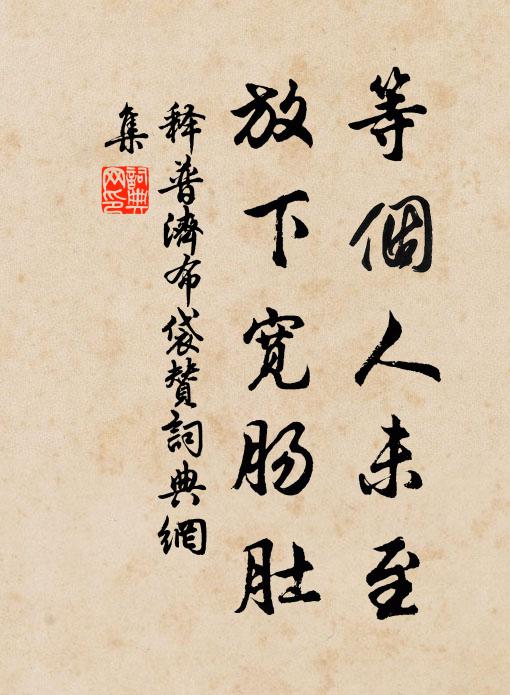 等個人未至
放下寬肠肚
释普濟布袋贊詞典網
集
詞典网印